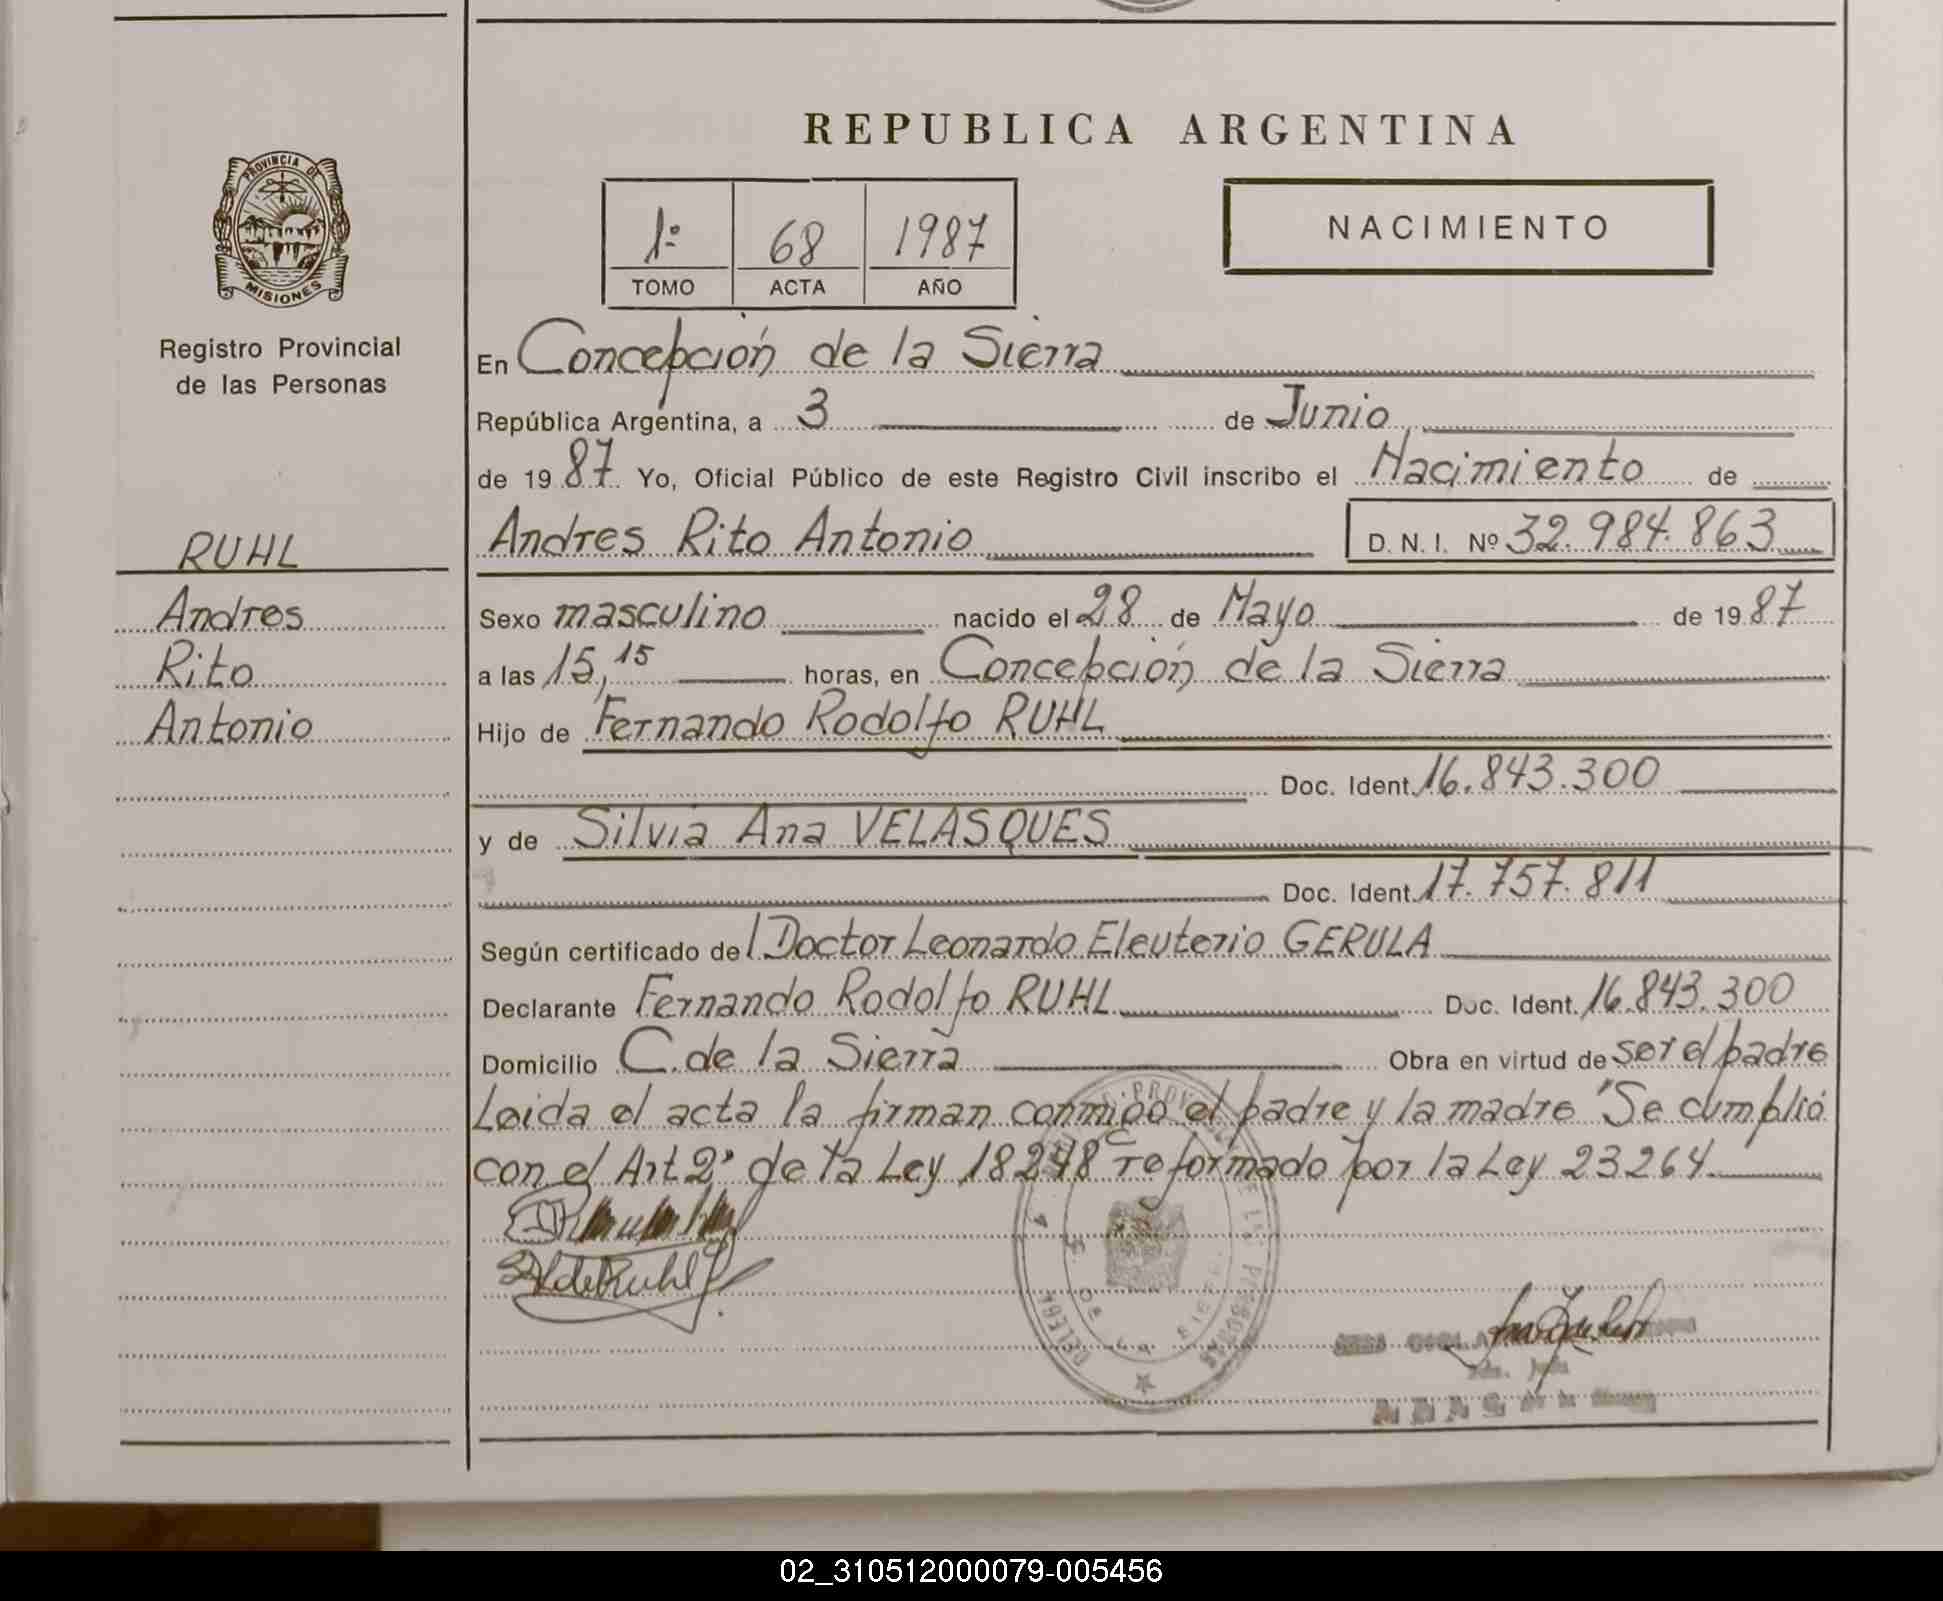 PROVINCIA DE
MISIONES
Registro Provincial
de las Personas
RUHL
Andres
Rito
Antonio
REPUBLICA ARGENTINA
1º 68 1987
TOMO ACTA AÑO
NACIMIENTO
En Concepción de la Sierra
República Argentina, a 3 de Junio
de 1987 Yo, Oficial Público de este Registro Civil inscribo el Nacimiento de
Andres Rito Antonio D. N. I. Nº 32.984.863
Sexo masculino nacido el 28 de Mayo de 1987
a las 15,15 horas, en Concepción de la Sierra
Hijo de Fernando Rodolfo RUHL
Doc. Ident. 16.843.300
y de Silvia Ana VELASQUES
Doc. Ident. 17.757.811
Según certificado del Doctor Leonardo Eleuterio GERULA
Declarante Fernando Rodolfo RUHL Doc. Ident. 16.843.300
Domicilio C. de la Sierra Obra en virtud de ser el padre
Leida el acta la firman conmigo el padre y la madre "Se cumplió
con el Art 2º de la Ley 18248 reformado por la Ley 23264.
de Ruhl
02_310512000079-005456